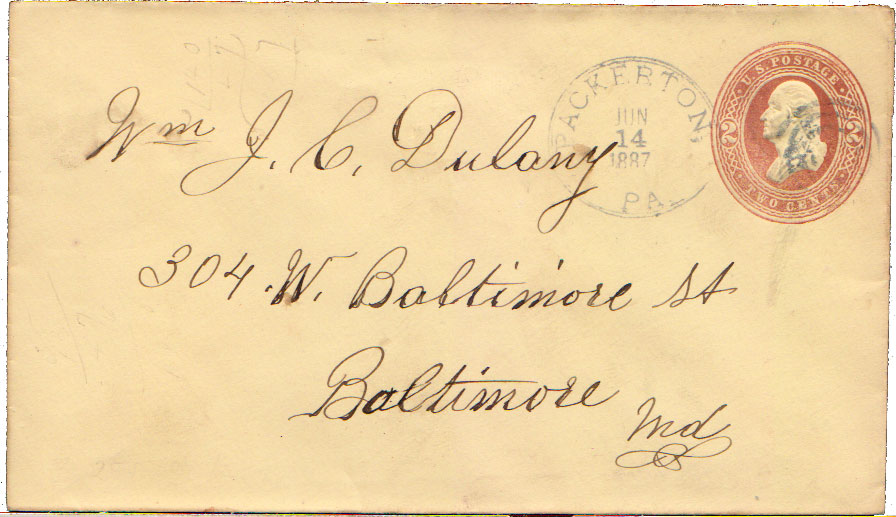 PACKERTON,
JUN
14
1887
PA.
U.S. POSTAGE
2 2
TWO CENTS
Wm J. C. Dulany
304 W. Baltimore St
Baltimore
Md